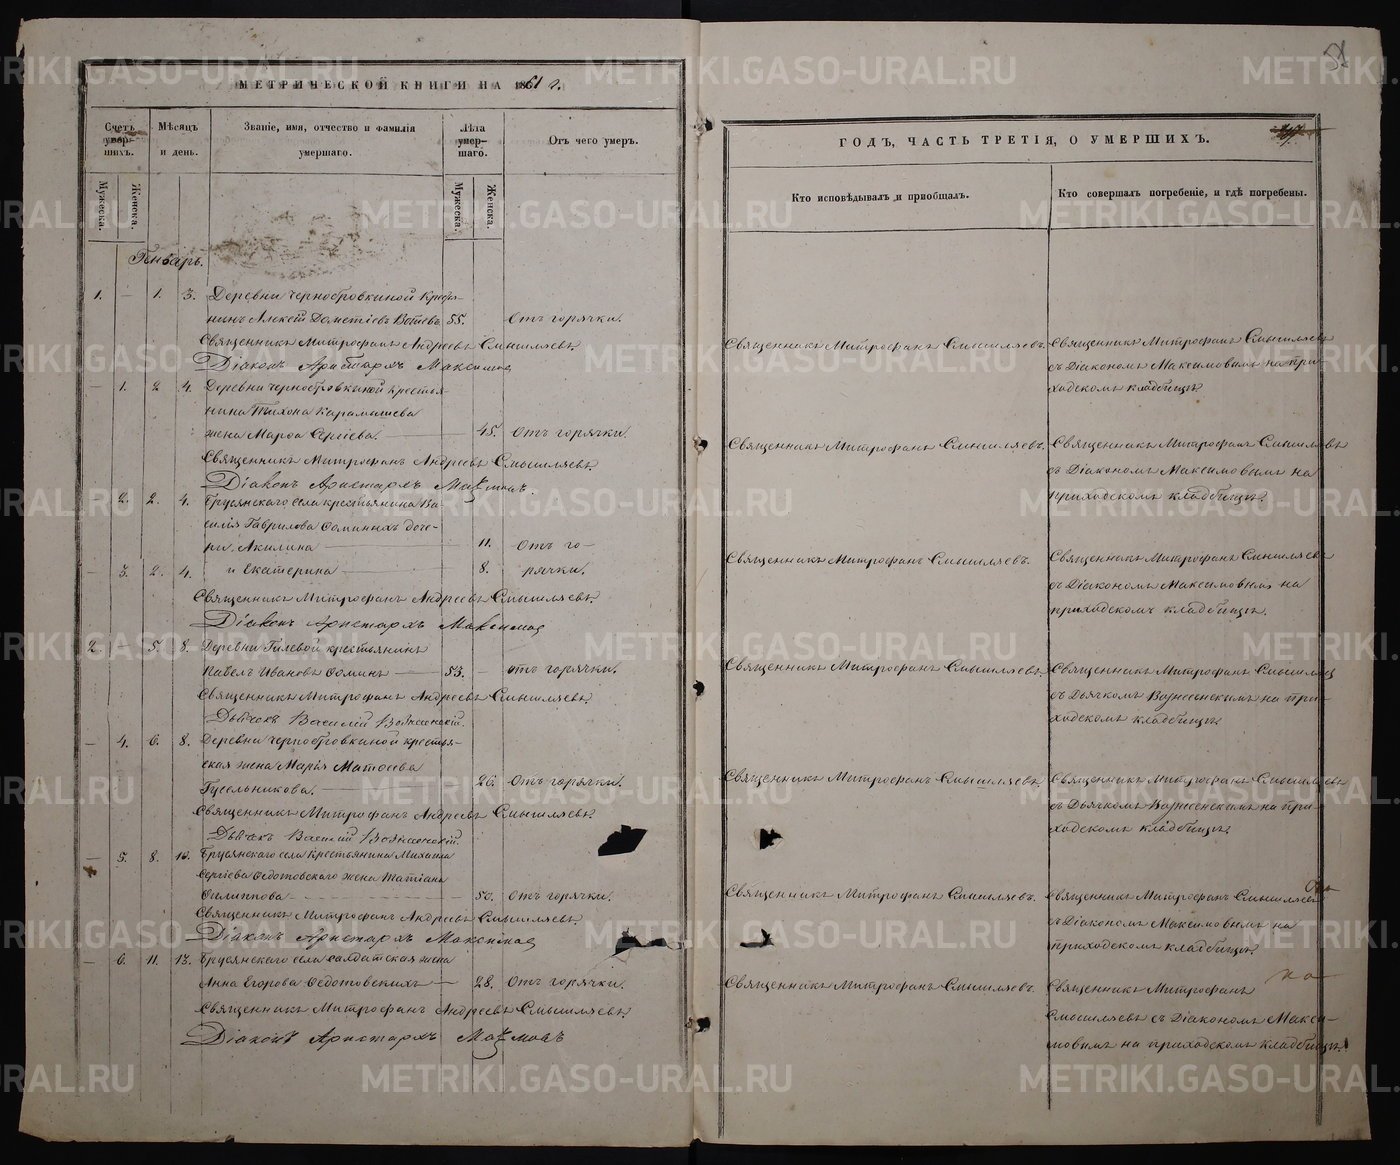 МЕТРИЧЕСКОЙ КНИГИ НА 1861 г.
Счетъ умер-шихъ.
Мужеска.
Женска.
Мѣсяцъ и день.
Званіе, имя, отчество и фамилія умершаго.
Лѣта умер-шаго.
Мужеска.
Женска.
Отъ чего умеръ.
Генварь.
1. – 1. 3. Деревни Чернобровкиной крестья-
нинъ Алексѣй Дометіевъ 55. Отъ горячки.
Священникъ Митрофанъ Андреевъ Смышляевъ.
Діаконъ Аристархъ Максимов
– 1. 2 4. Деревни Чернобровкиной крестья-
нина Тихона Карамышева
жена Марѳа Сергіева. 45. Отъ горячки.
Священникъ Митрофанъ Андреевъ Смышляевъ.
Діаконъ Аристархъ Максимовъ.
2. 2. 4. Брусянскаго села крестьянина Ва-
силія Гаврилова Ѳоминыхъ доче-
ри, Акилина 11. Отъ го-
– 3. 2. 4. и Екатерина 8. рячки.
Священникъ Митрофанъ Андреевъ Смышляевъ.
Діаконъ Аристархъ Максимов
2. 5. 8. Деревни Гилевой крестьянинъ
Павелъ Ивановъ Ѳоминъ 53. – отъ горячки.
Священникъ Митрофанъ Андреевъ Смышляевъ.
Дьячекъ Василій Вознесенскій.
– 4. 6. 8. Деревни Чернобровкиной крестья-
ская жена Марія Матѳеева
Гусельникова. 26. Отъ горячки.
Священникъ Митрофанъ Андреевъ Смышляевъ.
Дьячекъ Василій Вознесенскій.
– 5. 8. 10. Брусянскаго села крестьянина Михаила
Сергіева Ѳедотовскаго жена Татіана
Филиппова 50. Отъ горячки.
Священникъ Митрофанъ Андреевъ Смышляевъ
Діаконъ Аристархъ Максимов
– 6. 11. 13. Брусянскаго села салдатская жена
Анна Егорова Ѳедотовскихъ – 28. Отъ горячки.
Священникъ Митрофанъ Андреевъ Смышляевъ.
Діаконъ Аристархъ Максимовъ
ГОДЪ, ЧАСТЬ ТРЕТІЯ, О УМЕРШИХЪ.
Кто исповѣдывалъ и пріобщалъ.
Кто совершалъ погребеніе, и гдѣ погребены.
Священникъ Митрофанъ Смышляевъ.
Священникъ Митрофанъ Смышляевъ
съ Діакономъ Максимовымъ на при-
ходскомъ кладбищѣ.
Священникъ Митрофанъ Смышляевъ.
Священникъ Митрофанъ Смышляевъ
съ Діакономъ Максимовымъ на
приходскомъ кладбищѣ.
Священникъ Митрофанъ Смышляевъ.
Священникъ Митрофанъ Смышляевъ
съ Діакономъ Максимовымъ на
приходскомъ кладбищѣ.
Священникъ Митрофанъ Смышляевъ.
Священникъ Митрофанъ Смышляев
съ Дьячкомъ Вознесенскимъ на при-
ходскомъ кладбищѣ.
Священникъ Митрофанъ Смышляевъ.
Священникъ Митрофанъ Смышляевъ
съ Дьячкомъ Вознесенскимъ на при-
ходскомъ кладбищѣ.
Священникъ Митрофанъ Смышляевъ.
Священникъ Митрофанъ Смышляевъ
съ Діакономъ Максимовымъ на
приходскомъ кладбищѣ.
Священникъ Митрофанъ Смышляевъ.
Священникъ Митрофанъ
Смышляевъ съ Діакономъ Макси-
мовымъ на приходскомъ кладбищѣ.
METRIKI.GASO-URAL.RU